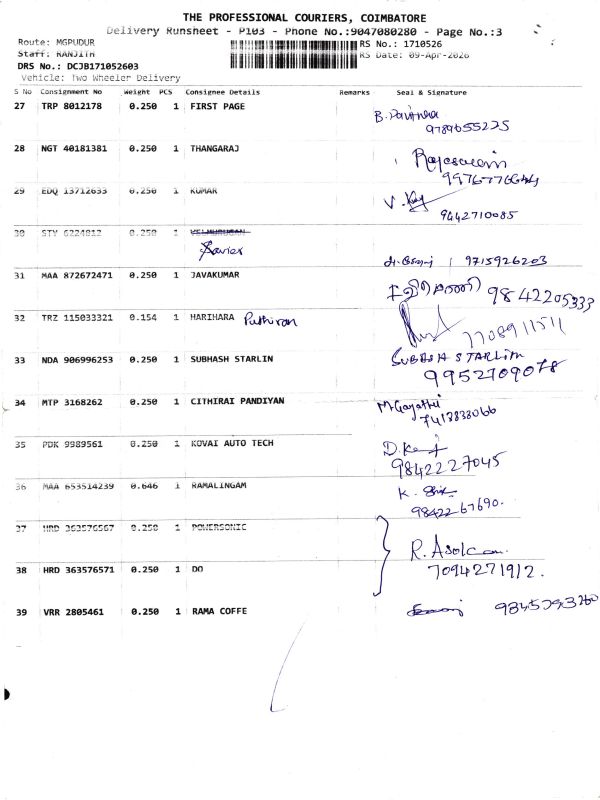 THE PROFESSIONAL COURIERS, COIMBATORE
Delivery Runsheet - P103 - Phone No.:9047080280 - Page No.:3
Route: MGPUDUR RS No.: 1710526
Staff: RANJITH RS Date: 09-Apr-2026
DRS No.: DCJB171052603
Vehicle: Two Wheeler Delivery
S No Consignment No Weight PCS Consignee Details Remarks Seal & Signature
27 TRP 8012178 0.250 1 FIRST PAGE B. Pavithra
9789655225
28 NGT 40181381 0.250 1 THANGARAJ
29 EDQ 13712633 0.250 1 KUMAR V.
9442710085
30 STV 6224812 0.250 1 VELMURUGAN
Xavier
9715926203
31 MAA 872672471 0.250 1 JAVAKUMAR
9842205333
32 TRZ 115033321 0.154 1 HARIHARA Puthiran
7708911511
33 NDA 906996253 0.250 1 SUBHASH STARLIN SUBASH STARLIN
9952709078
34 MTP 3168262 0.250 1 CITHIRAI PANDIYAN M Gayathri
7418838066
35 PDK 9989561 0.250 1 KOVAI AUTO TECH D.
9842227045
36 MAA 653514239 0.646 1 RAMALINGAM K.
9842267690.
37 HRD 363576567 0.250 1 POWERSONIC
R.
38 HRD 363576571 0.250 1 DO 7094271912.
39 VRR 2805461 0.250 1 RAMA COFFE